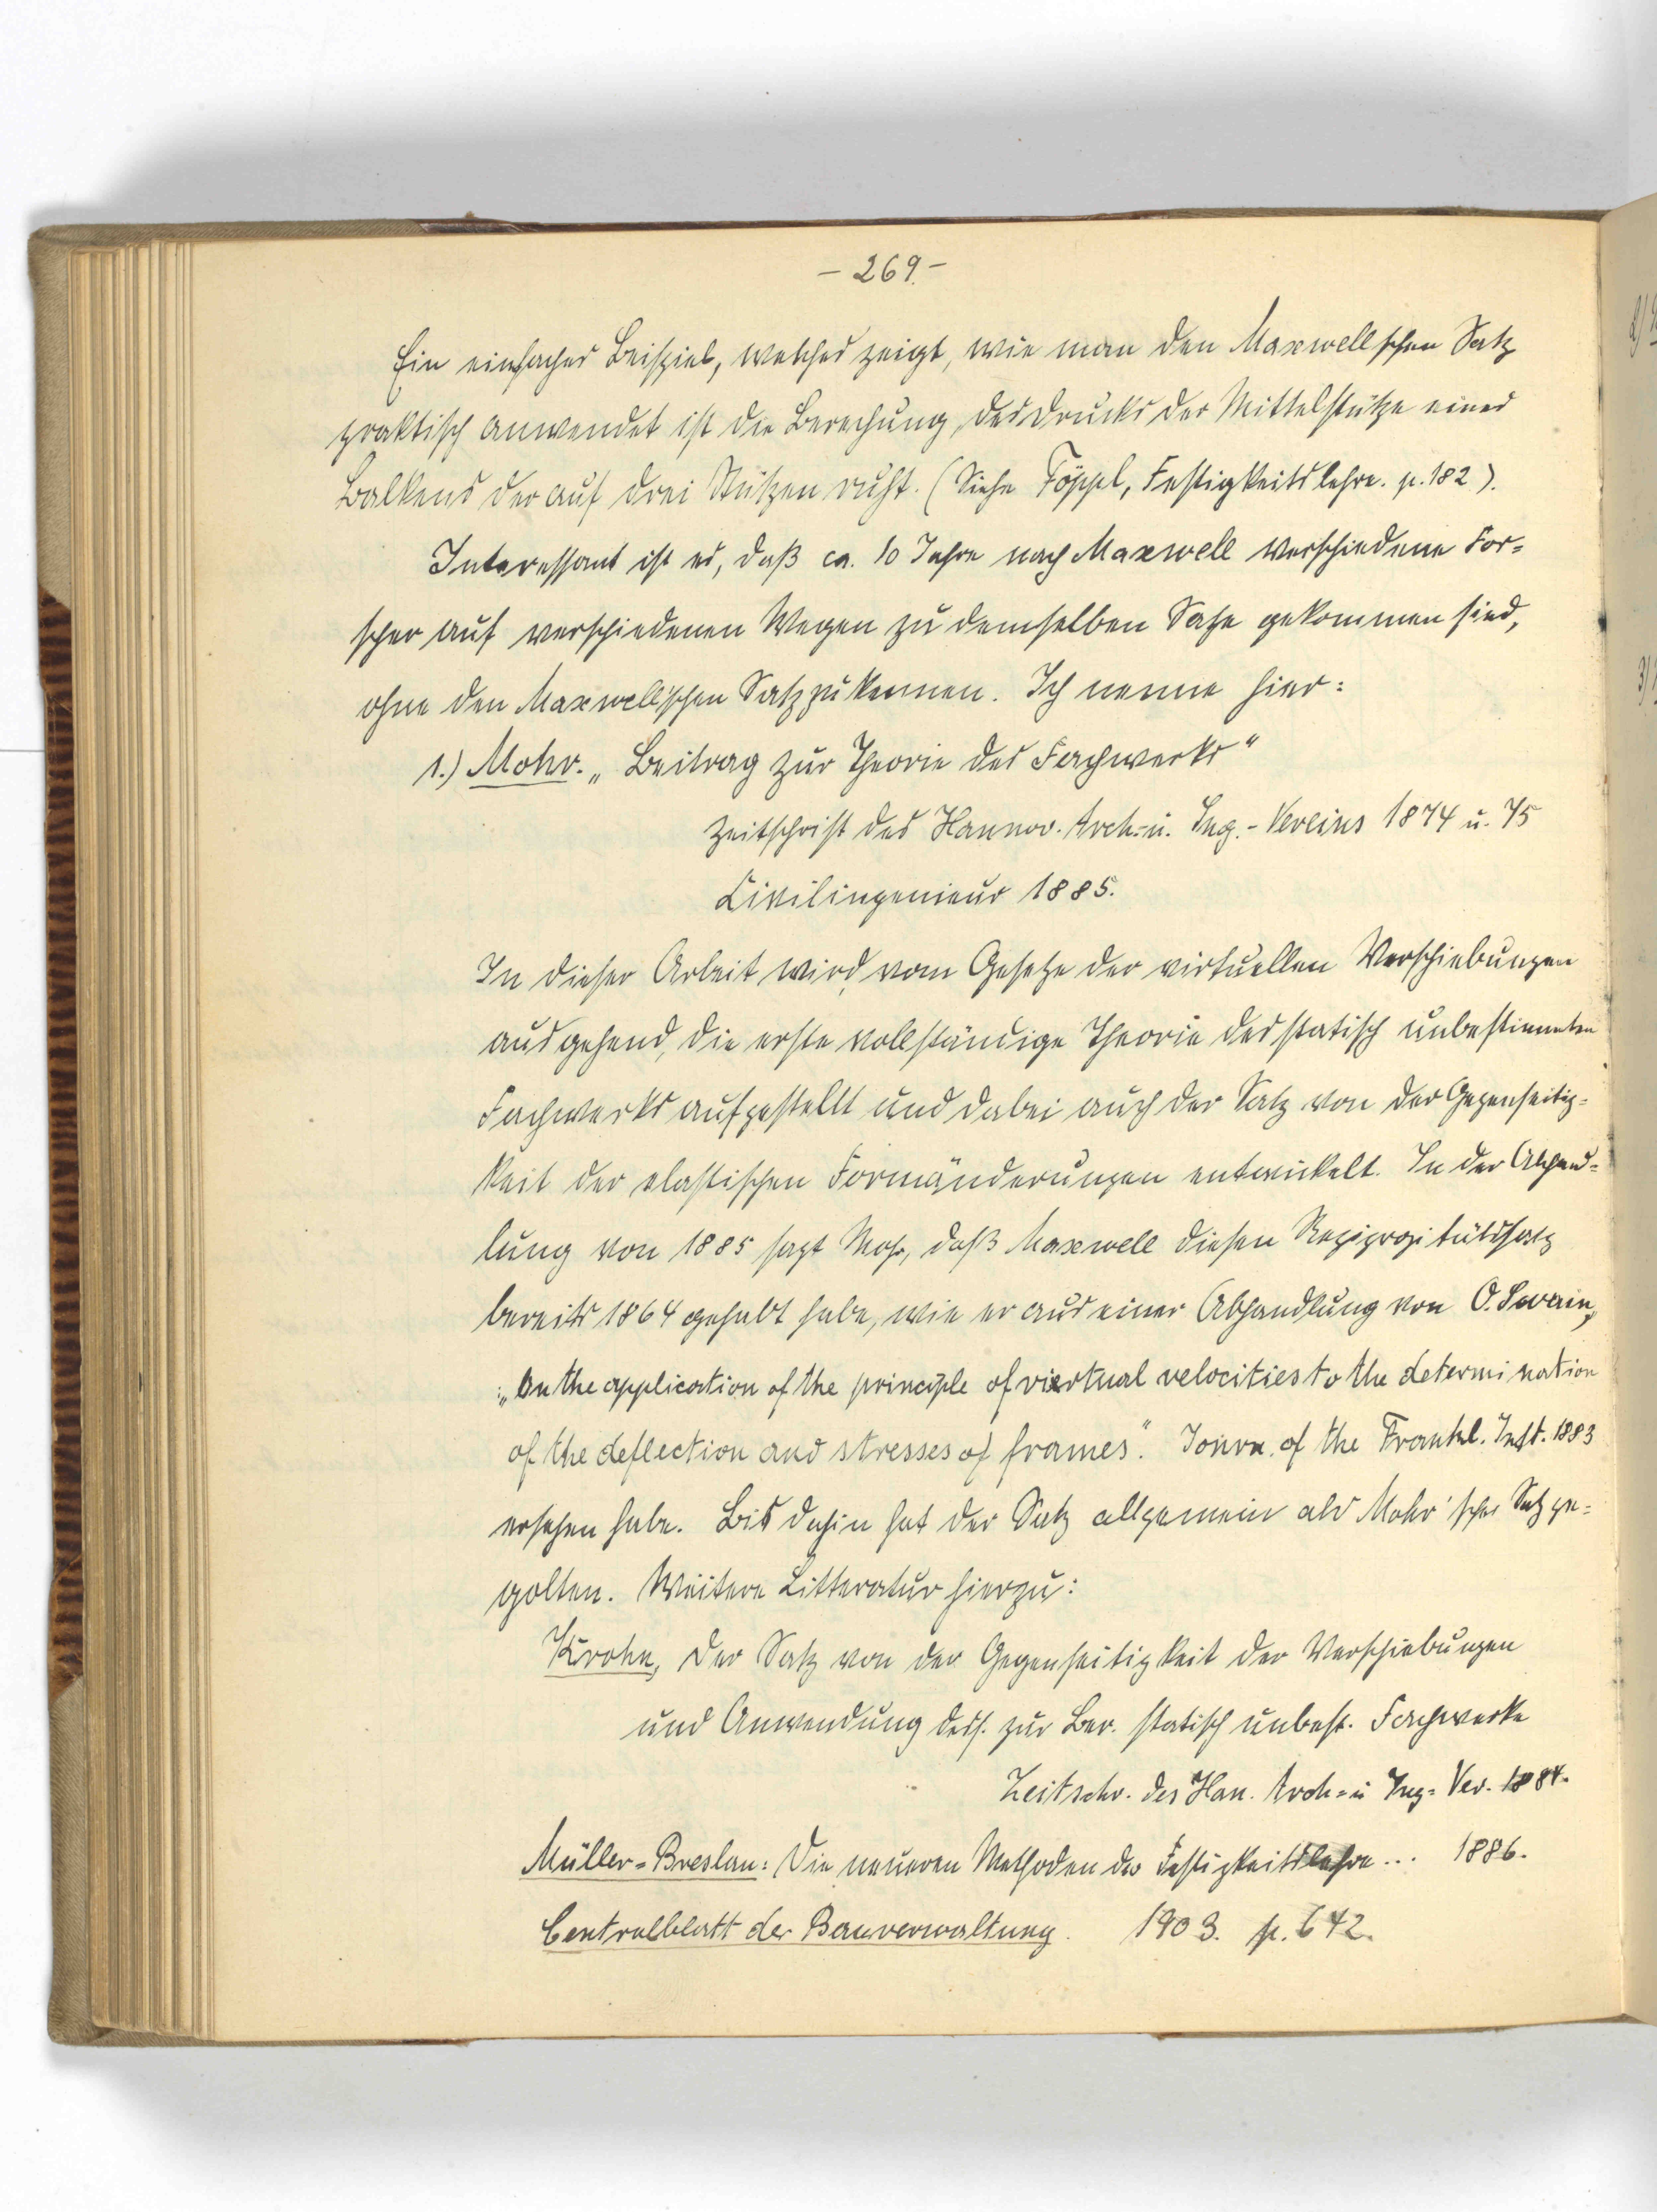 - 269. -
Ein einfaches Beispiel, welches zeigt, wie man den Maxwellschen Satz
praktisch anwendet ist die Berechung, des Drucks der Mittelstütze eines
Balkens der auf drei Stützen ruht. (Siehe Föppl, Festigkeitslehre. p. 182).
Interessant ist es, daß ca. 10 Jahre nach Maxwell verschiedene For=
scher auf verschiedenen Wegen zu demselben Satze gekommen sind,
ohne den Maxwell'schen Satz zu kennen. Ich nenne hier:
1.) Mohr. „Beitrag zur Theorie des Fachwerks“
Zeitschrift des Hannov. Arch.- u. Ing.- Vereins 1874 u. 75
Civilingenieur 1885.
In dieser Arbeit wird, vom Gesetze der virtuellen Verschiebungen
ausgehend, die erste vollständige Theorie des statisch unbestimmten
Fachwerks aufgestellt und dabei auch der Satz von der Gegenseitig=
keit der elastischen Formänderungen entwickelt. In der Abhand=
lung von 1885 sagt Mohr, daß Maxwell diesen Reziprozitätssatz
bereits 1864 gehabt habe, wie er aus einer Abhandlung von O. Swain,
„On the application of the principle of virtual velocities to the determination
of the deflection and stresses of frames“. Journ. of the Frankl. Inst. 1883
ersehen habe. Bis dahin hat der Satz allgemein als Mohr'scher Satz ge=
golten. Weitere Litteratur hierzu:
Krohn, Der Satz von der Gegenseitigkeit der Verschiebungen
und Anwendung dess. zur Ber. statisch unbest. Fachwerke
Zeitschr. des Han. Arch= u Ing= Ver. 1884.
Müller=Breslau: Die neueren Methoden der Festigkeitslehre ... 1886.
Centralblatt der Bauverwaltung. 1903. p. 642.